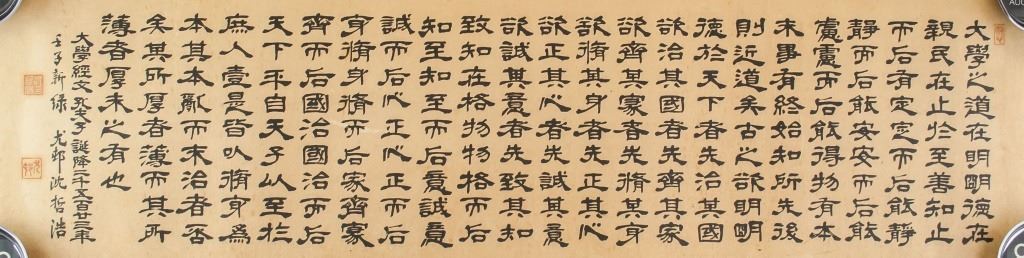 大學之道在明明德在
親民在止於至善知止
而后有定定而后能靜
靜而后能安安而后能
慮慮而后能得物有本
末事有終始知所先後
則近道矣古之欲明明
德於天下者先治其國
欲治其國者先齊其家
欲齊其家者先脩其身
欲脩其身者先正其心
欲正其心者先誠其意
欲誠其意者先致其知
致知在格物物格而后
知至知至而后意誠意
誠而后心正心正而后
身脩身脩而后家齊家
齊而后國治國治而后
天下平自天子以至於
庶人壹是皆以脩身為
本其本亂而末治者否
矣其所厚者薄而其所
薄者厚未之有也
大學經文 孔夫子誕降二千五百廿三年
壬子新綠 尤邨 沈哲浩